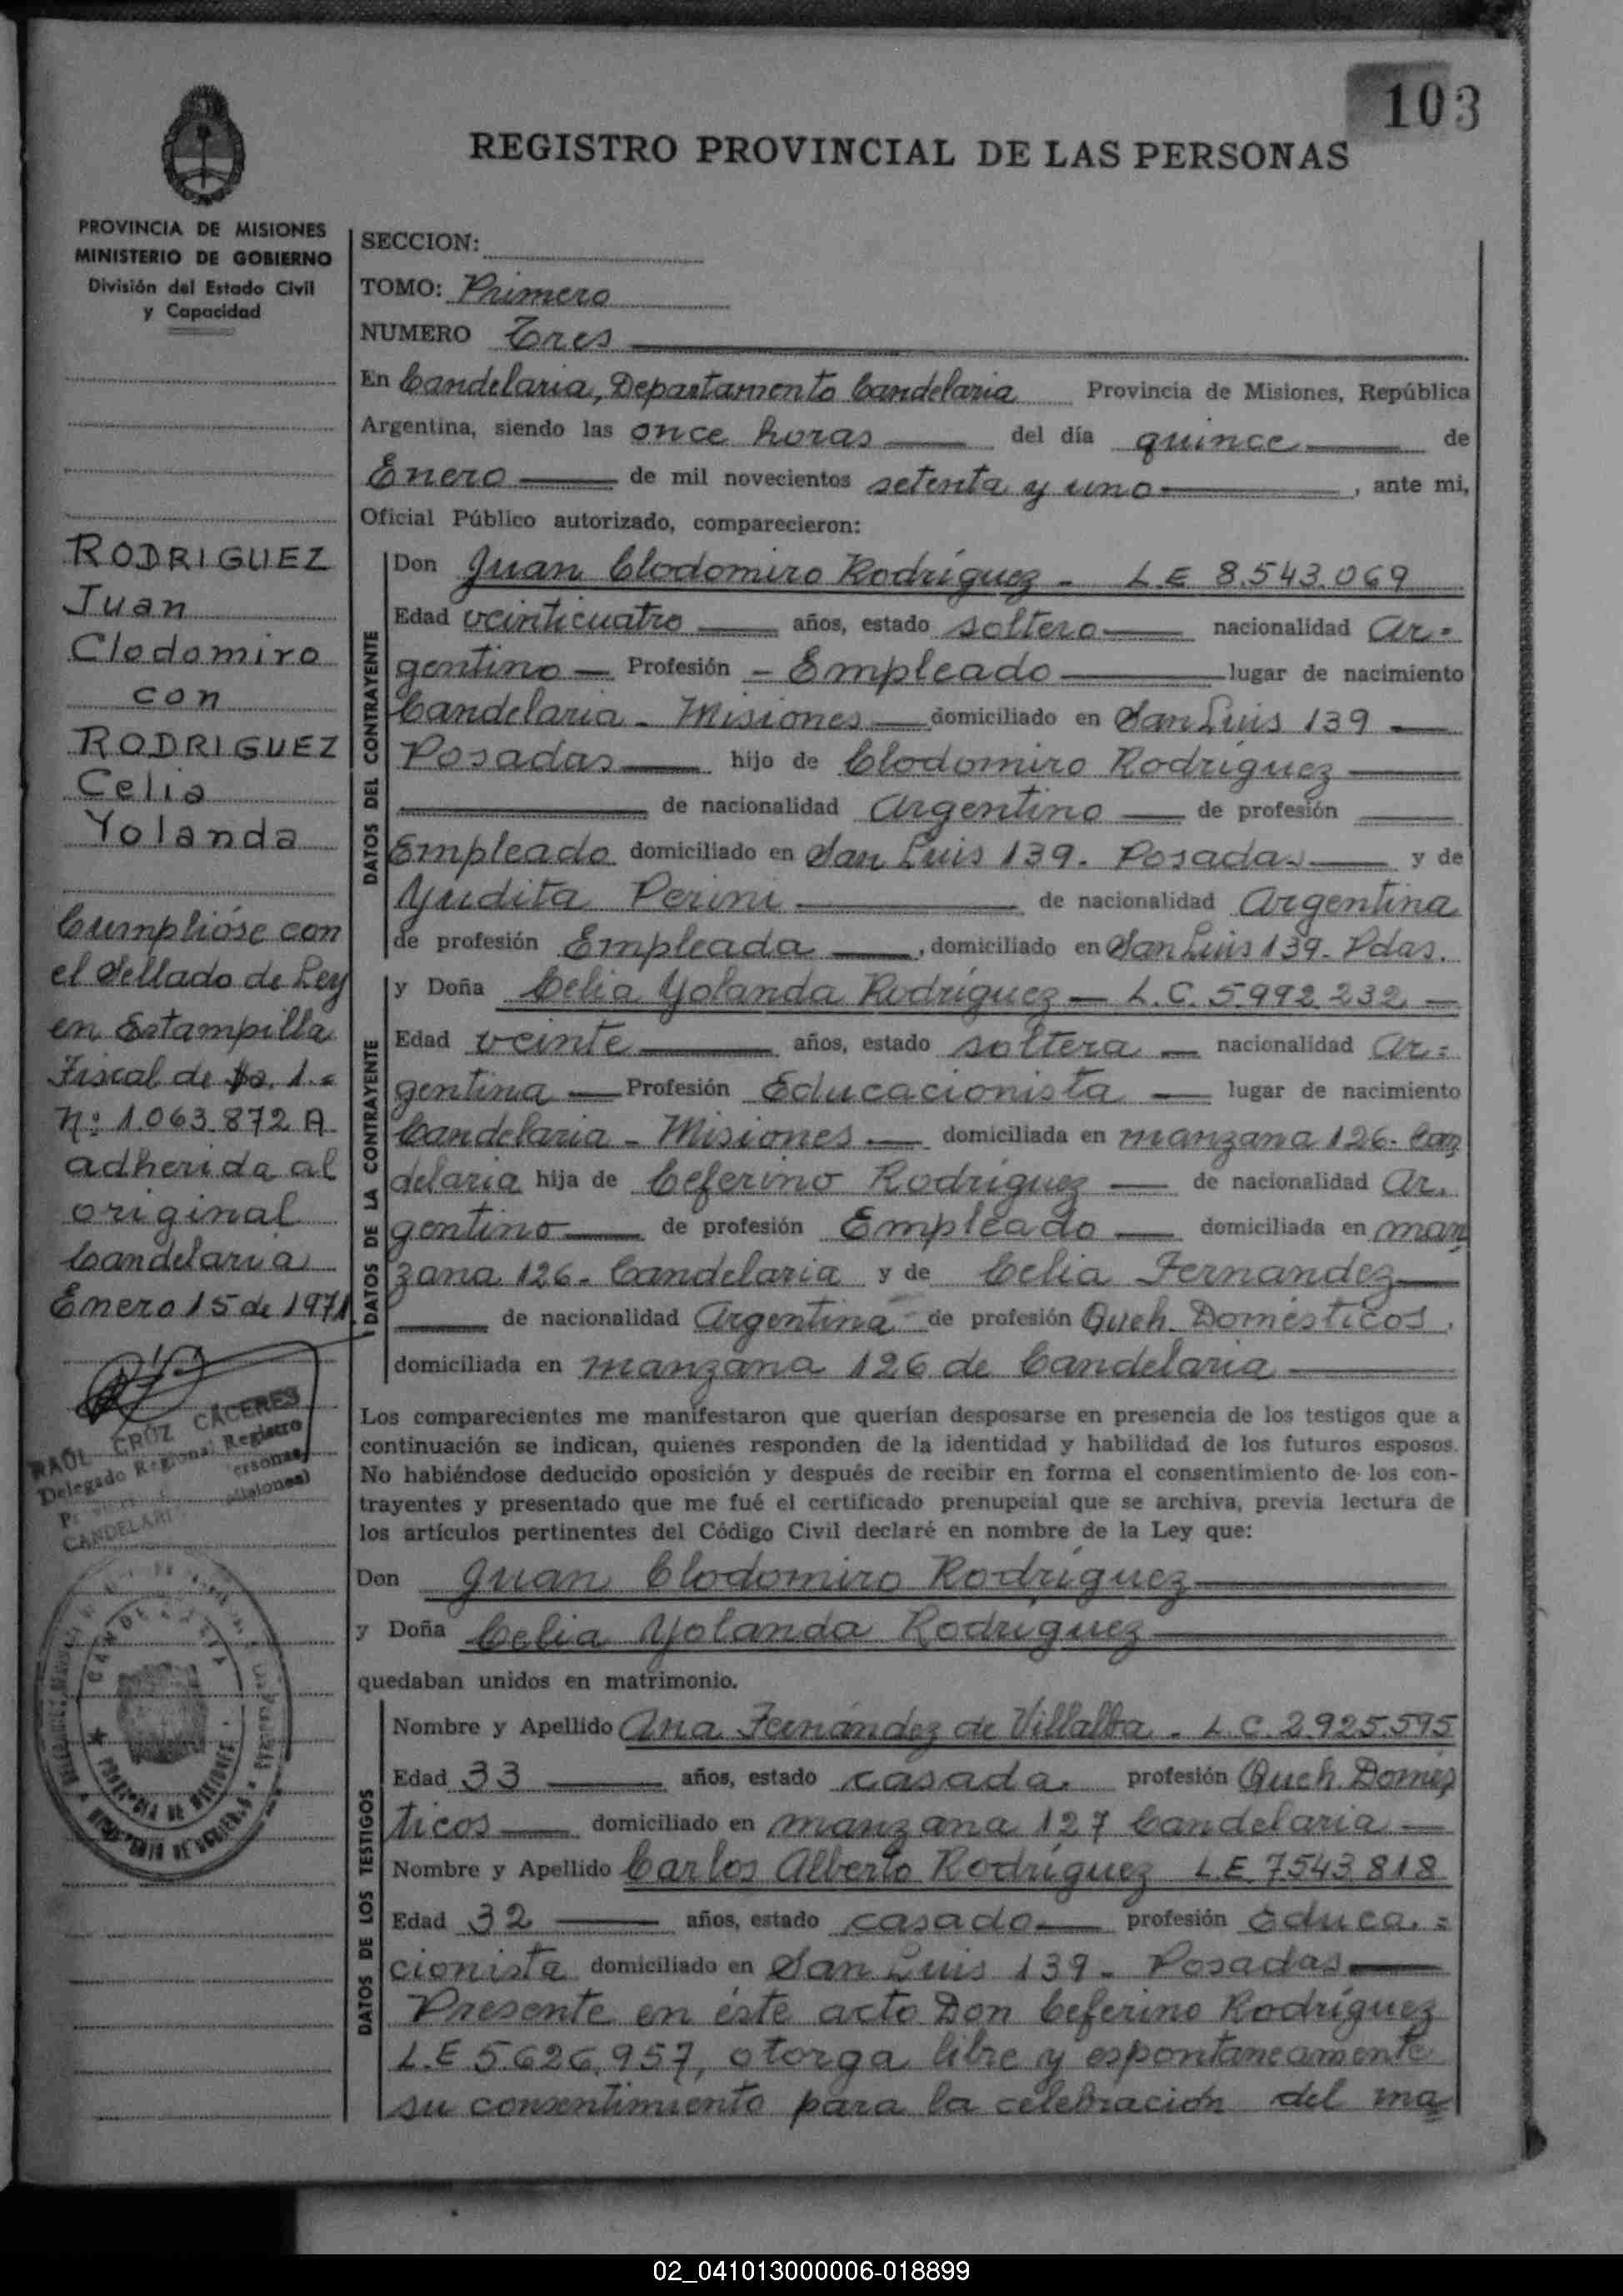 103
REGISTRO PROVINCIAL DE LAS PERSONAS
PROVINCIA DE MISIONES
MINISTERIO DE GOBIERNO
División del Estado Civil
y Capacidad
RODRIGUEZ
Juan
Clodomiro
con
RODRIGUEZ
Celia
Yolanda
Cumplióse con
el Sellado de Ley
en Estampilla
Fiscal de $a. 1.=
Nº: 1.063.872 A
adherida al
original
Candelaria
Enero 15 de 1971
RAÚL CRUZ CÁCERES
Delegado Regional Registro
CANDELARI
SECCION:
TOMO: Primero
NUMERO Tres
En Candelaria, Departamento Candelaria Provincia de Misiones, República
Argentina, siendo las once horas — del día quince — de
Enero — de mil novecientos setenta y uno —, ante mi,
Oficial Público autorizado, comparecieron:
DATOS DEL CONTRAYENTE
Don Juan Clodomiro Rodríguez - L.E 8.543.069
Edad veinticuatro — años, estado soltero — nacionalidad Ar=
gentino — Profesión - Empleado — lugar de nacimiento
Candelaria - Misiones — domiciliado en San Luis 139 —
Posadas — hijo de Clodomiro Rodríguez —
— de nacionalidad Argentino — de profesión —
Empleado domiciliado en San Luis 139. Posadas — y de
Yudita Perini — de nacionalidad Argentina
de profesión Empleada —, domiciliado en San Luis 139- Pdas.
DATOS DE LA CONTRAYENTE
y Doña Celia Yolanda Rodríguez — L.C. 5.992.232 —
Edad veinte — años, estado soltera — nacionalidad Ar=
gentina — Profesión Educacionista — lugar de nacimiento
Candelaria - Misiones — domiciliada en manzana 126- Can
delaria hija de Ceferino Rodríguez — de nacionalidad Ar.
gentino — de profesión Empleado — domiciliada en man
zana 126- Candelaria y de Celia Fernandez —
— de nacionalidad Argentina - de profesión Queh. Domésticos,
domiciliada en manzana 126 de Candelaria —
Los comparecientes me manifestaron que querían desposarse en presencia de los testigos que a
continuación se indican, quienes responden de la identidad y habilidad de los futuros esposos.
No habiéndose deducido oposición y después de recibir en forma el consentimiento de los con-
trayentes y presentado que me fué el certificado prenupcial que se archiva, previa lectura de
los artículos pertinentes del Código Civil declaré en nombre de la Ley que:
Don Juan Clodomiro Rodríguez —
y Doña Celia Yolanda Rodríguez —
quedaban unidos en matrimonio.
DATOS DE LOS TESTIGOS
Nombre y Apellido Ana Fernández de Villalba - L.C. 2.925.595
Edad 33 — años, estado casada. profesión Queh. Domés
ticos — domiciliado en manzana 127 Candelaria —
Nombre y Apellido Carlos Alberto Rodríguez L.E. 7.543.818
Edad 32 — años, estado casado — profesión Educa.=
cionista domiciliado en San Luis 139- Posadas —
Presente en éste acto Don Ceferino Rodríguez
L.E 5.626.957, otorga libre y espontaneamente
su consentimiento para la celebración del ma=
02_041013000006-018899